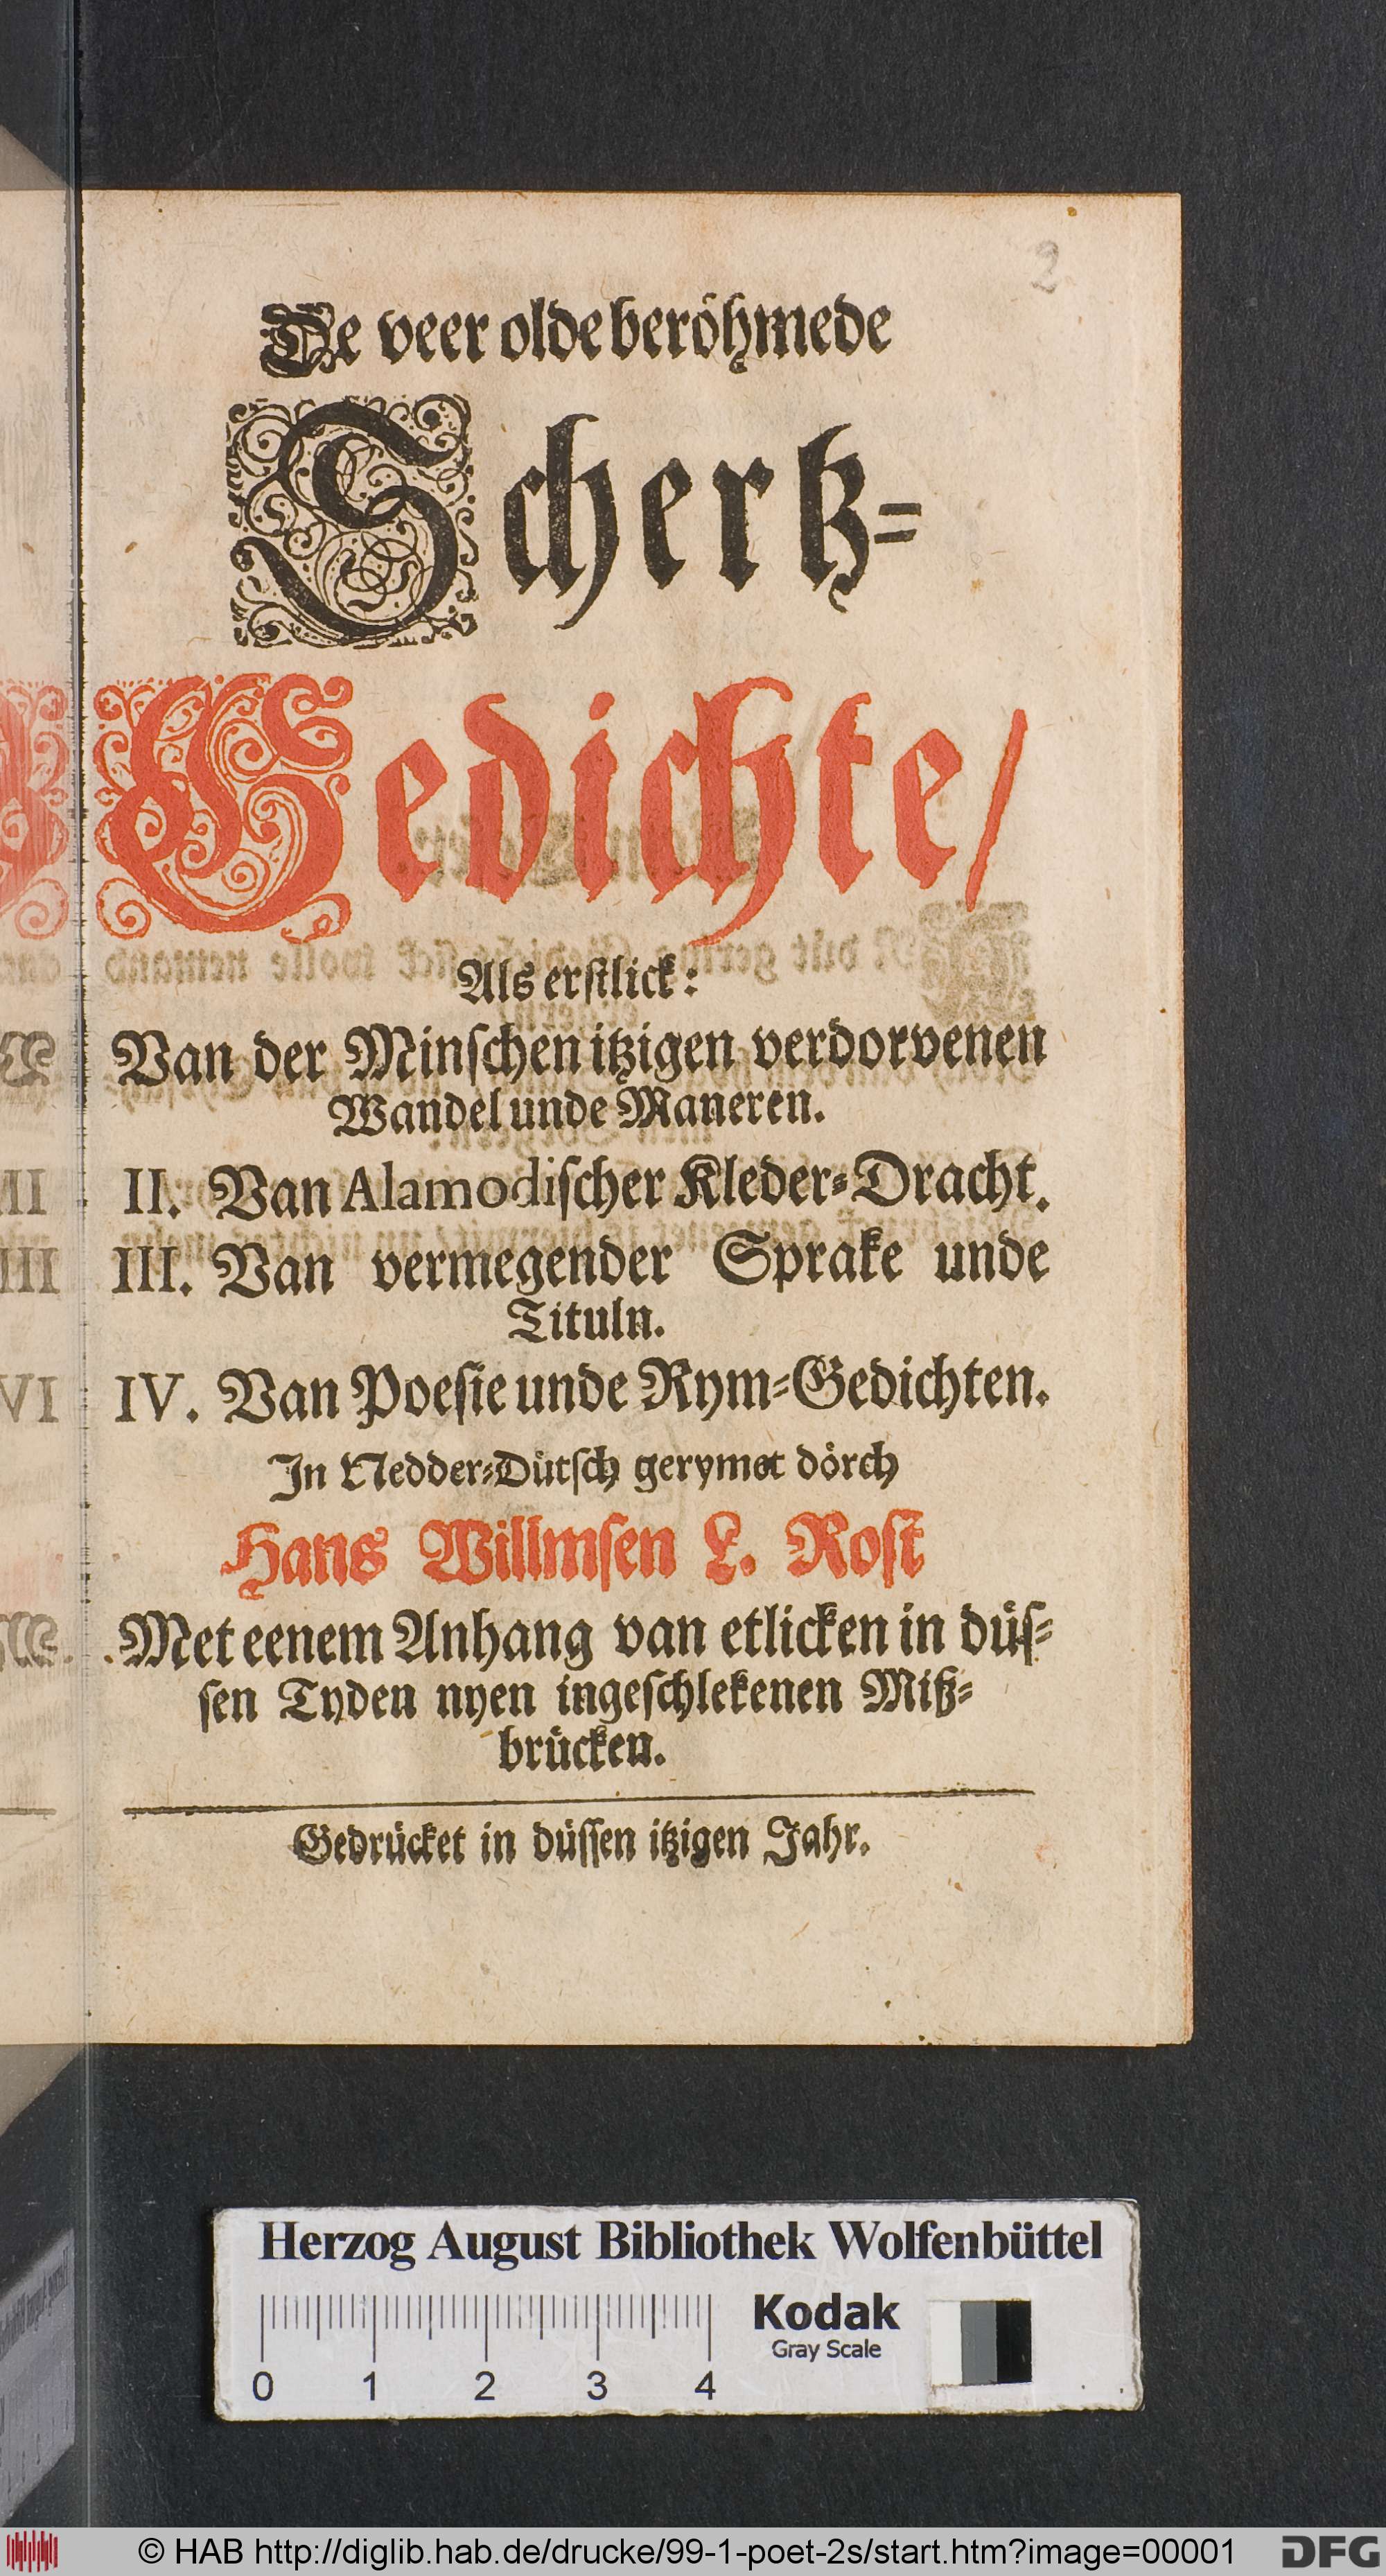 2
De veer olde beröhmede
Schertz=
Gedichte/
Als erstlick:
Van der Minschen itzigen verdorvenen
Wandel unde Maneren.
II. Van Alamodischer Kleder=Dracht.
III. Van vermegender Sprake unde
Tituln.
IV. Van Poesie unde Rym=Gedichten.
In Nedder=Dütsch gerymet dörch
Hans Willmsen L. Rost
Met eenem Anhang van etlicken in düs=
sen Tyden nyen ingeschlekenen Miß=
brücken.
Gedrücket in düssen itzigen Jahr.
Herzog August Bibliothek Wolfenbüttel
Kodak
Gray Scale
0 1 2 3 4
© HAB http://diglib.hab.de/drucke/99-1-poet-2s/start.htm?image=00001
DFG